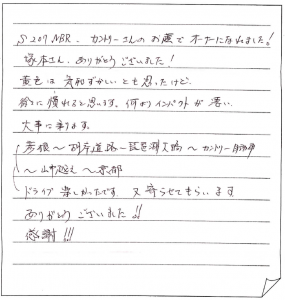 S207 NBR. カントリーさんのお蔭でオーナーになれました!
塚本さん、ありがとうございました!
黄色は 気恥ずかしいとも思ったけど、
徐々に慣れると思います。何よりインパクトが凄い。
大事に乗ります。
彦根〜湖岸道路〜琵琶湖大橋〜カントリー自動車
〜山中越え〜京都
ドライブ 楽しかったです 又寄らせてもらいます
ありがとうございました!!
感謝!!!